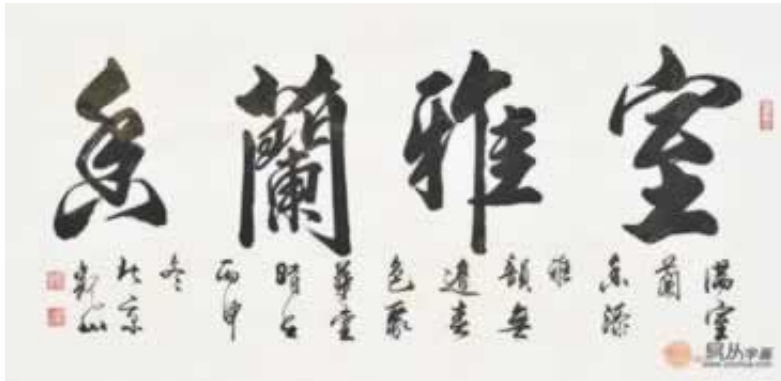 室雅蘭香
滿室
蘭
香添
雅
韻無
邊春
色聚
華堂
丙申
冬
易从字画